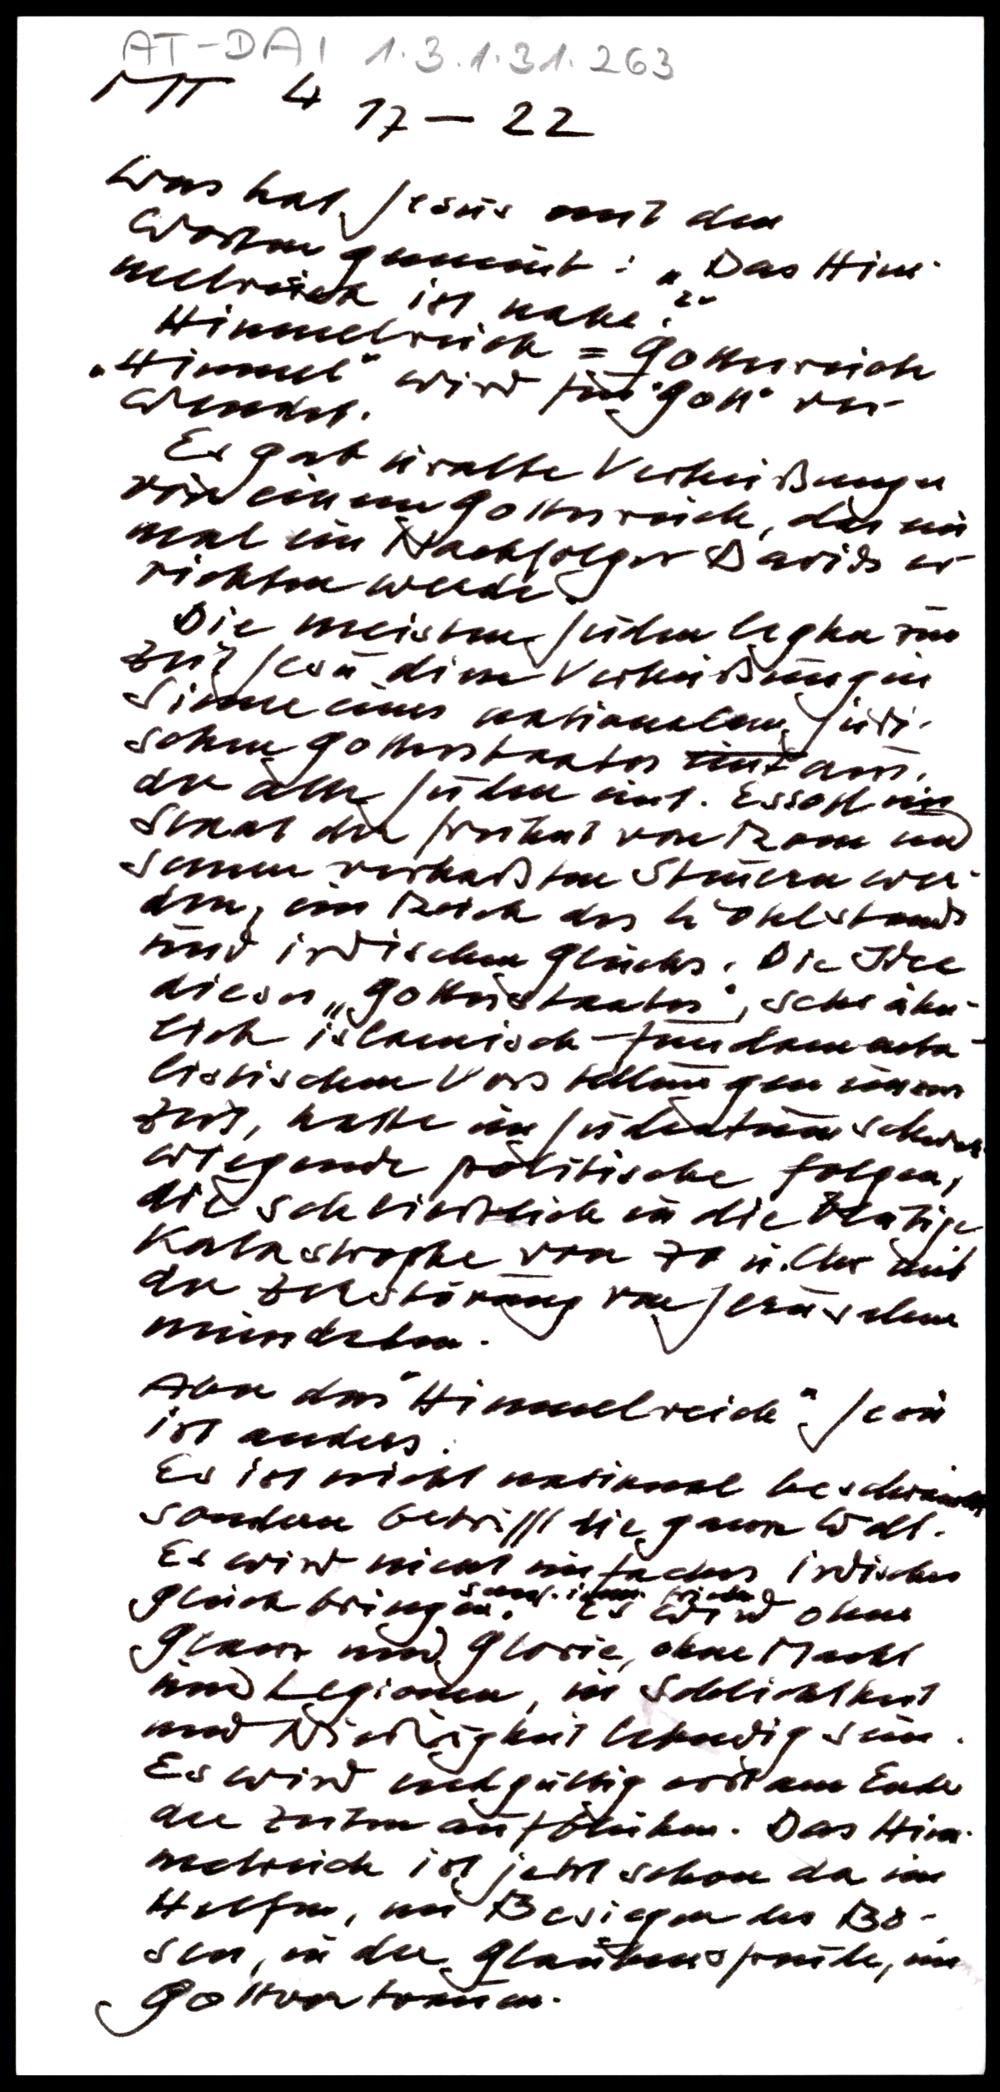 AT-DAI 1.3.1.31.263
MT 4 17 — 22
Was hat Jesus mit den
Worten gemeint: „Das Him-
melreich ist nahe?"
Himmelreich = Gottesreich
„Himmel" wird für "Gott" ver-
wendet.
Es gab uralte Verheißungen
von einem Gottesreich, das ein
mal ein Nachfolger Davids er
richten werde.
Die meisten Juden legten zur
Zeit Jesu diese Verheißung im
Sinne eines nationalen, jüdi-
schen Gottesstaates aus,
der alle Juden eint. Es soll ein
Staat der Freiheit von Rom und
seinen verhaßten Steuern wer-
den, ein Reich des Wohlstands
und irdischen Glücks. Die Idee
dieses „Gottesstaates", sehr ähn-
lich islamisch-fundamenta-
listischen Vorstellungen unserer
Zeit, hatte im Judentum schwer
wiegende politische Folgen,
die schließlich in die blutige
Katastrophe von 70 n. Chr mit
der Zerstörung von Jerusalem
mündeten.
Aber das "Himmelreich" Jesu
ist anders.
Es ist nicht national beschränkt
sondern betrifft die ganze Welt.
Es wird nicht einfaches irdisches
Glück bringen. Es wird ohne
Glanz und Glorie, ohne Macht
und Legionen, in Schlichtheit
und Niedrigkeit lebendig sein.
Es wird endgültig erst am Ende
der Zeiten aufblühen. Das Him-
melreich ist jetzt schon da im
Helfen, im Besiegen des Bö-
sen, in der Glaubensfreude, im
Gottvertrauen.